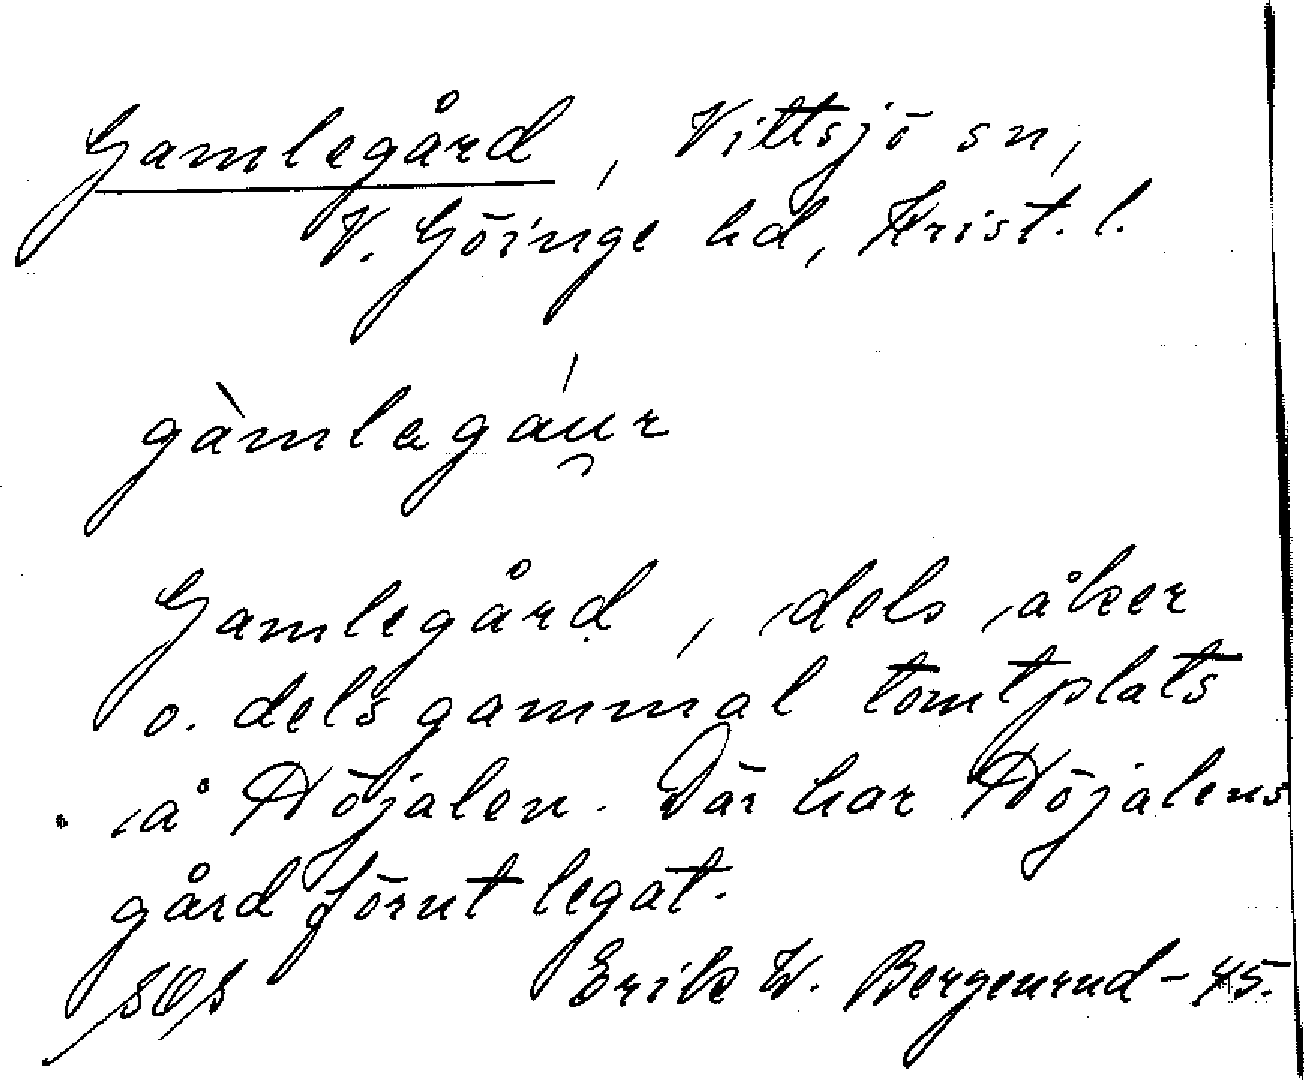 Gamlegård, Vittsjö sn,
V. Göinge hd, Krist. l.
gàmlagáu̯r
Gamlegård, dels åker
o. dels gammal tomtplats
å Höjalen. Där har Höjalens
gård förut legat.
Erik W. Bergenrud - 45.